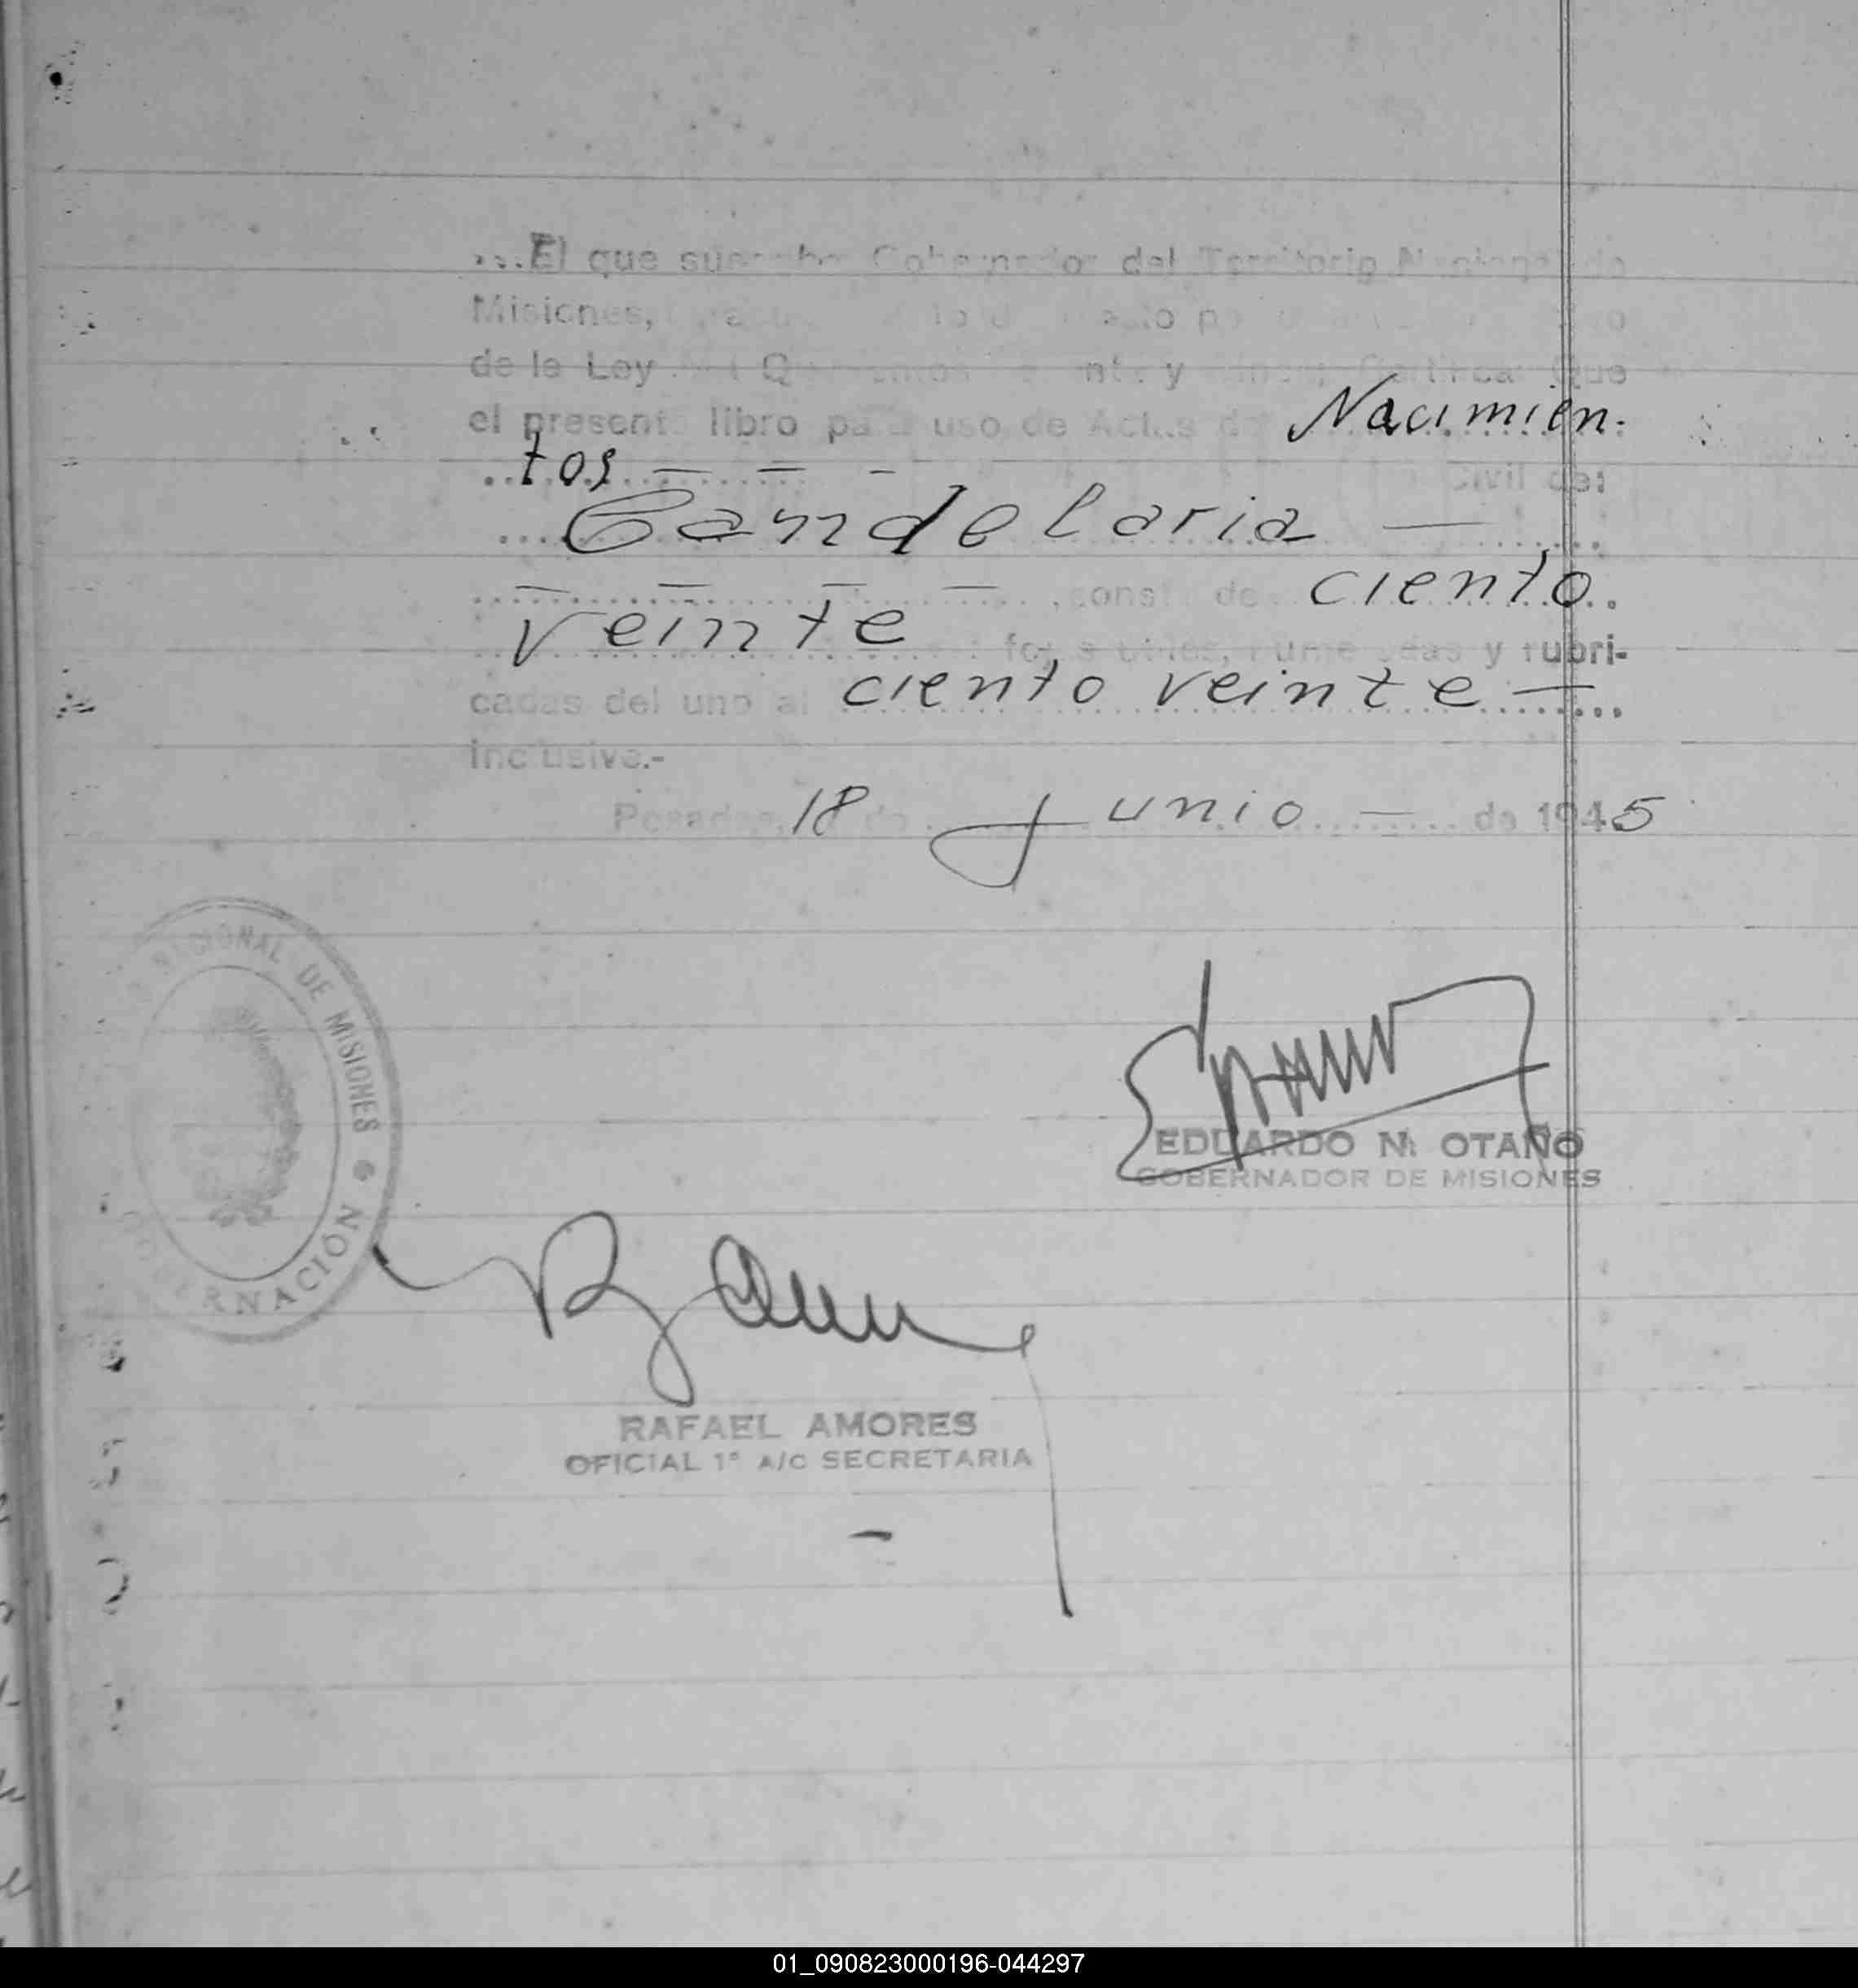 ...El que suscribe Gobernador del Territorio Nacional de
Misiones,
de la Ley Mil Quinientos y Certifica: Que
el presente libro para uso de Actas de Nacimien-
tos — — — Civil de:
Candelaria —
— — — — consta de ciento
veinte fojas útiles, numeradas y rubri-
cadas del uno al ciento veinte —
inclusive.-
Posadas, 18 de Junio — de 1945
NACIONAL DE MISIONES
GOBERNACIÓN
EDUARDO N. OTAÑO
GOBERNADOR DE MISIONES
RAFAEL AMORES
OFICIAL 1° A/C SECRETARIA
01_090823000196-044297